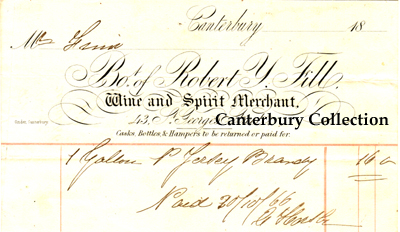 Canterbury 18
Mr Finn
Bot. of Robert Y. Fill.
Wine and Spirit Merchant.
43, St. George's
Canterbury Collection
Casks, Bottles, & Hampers to be returned or paid for.
1 Gallon P Brandy 16 0
Paid 20/10/66